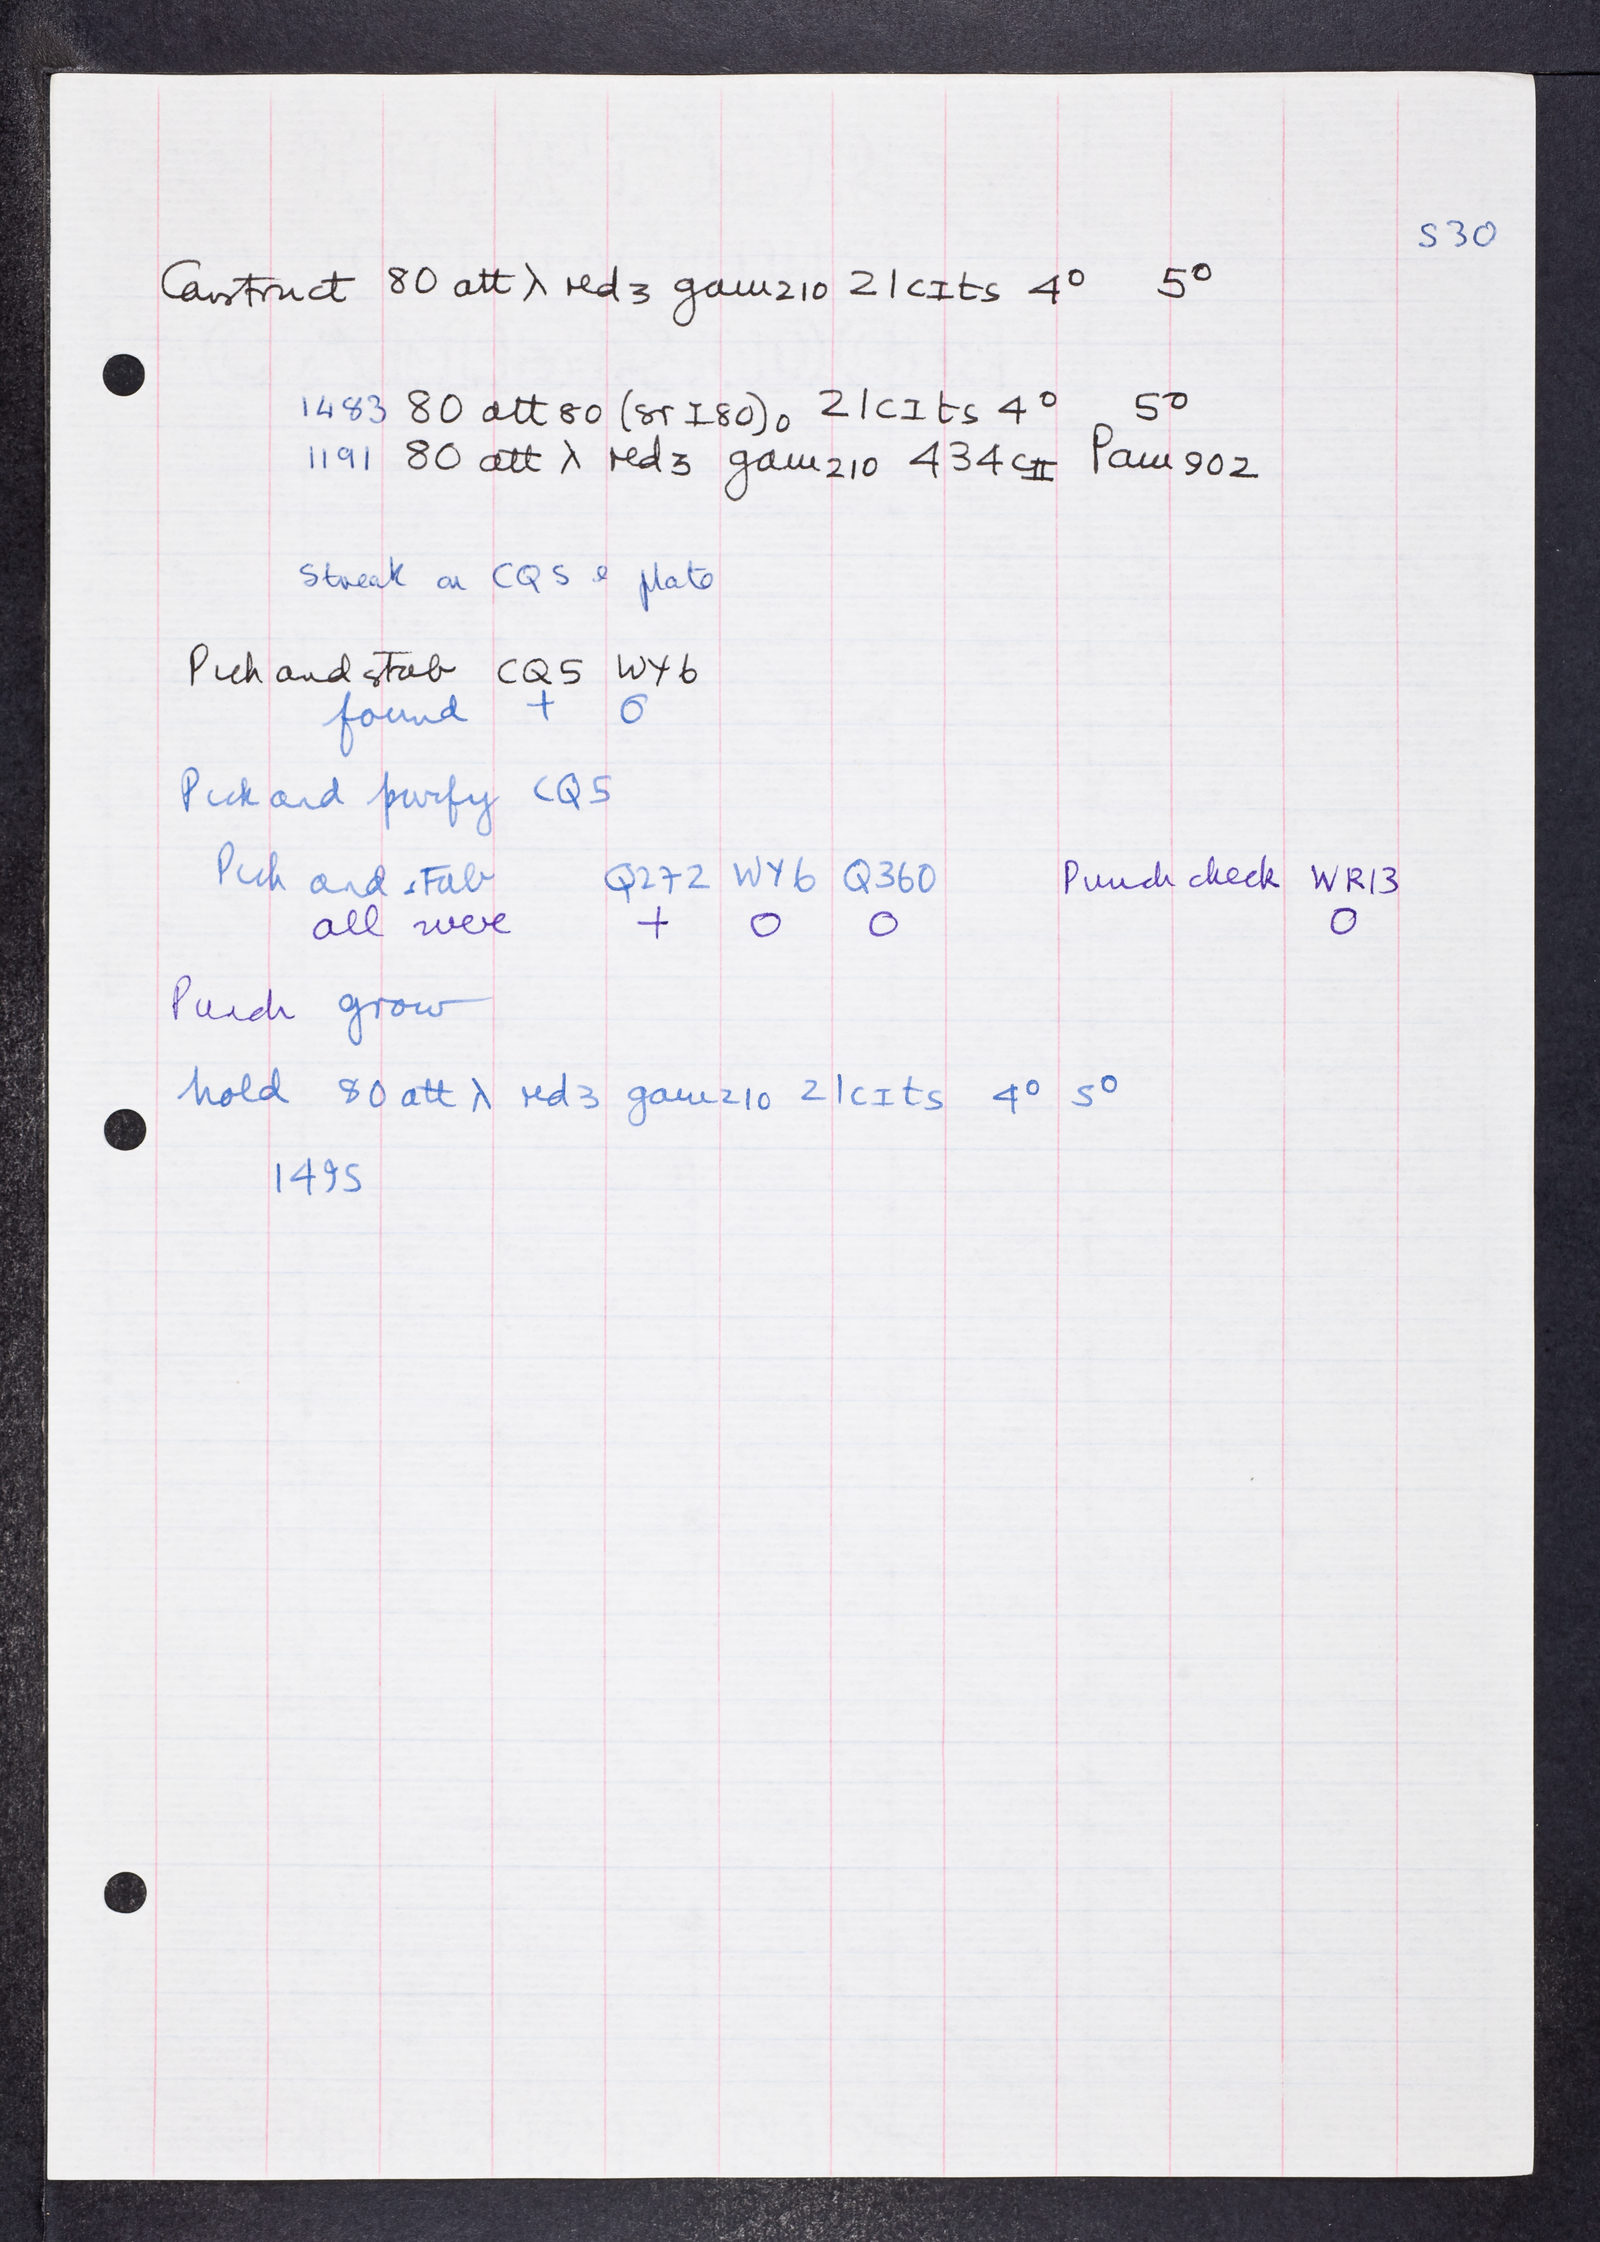 S30
Construct 80 att λ red3 gam210 21cIts 4° 5°
1483 80 att80 (srI80)° 21cIts 4° 5°
1191 80 att λ red3 gam210 434cII Pam902
Streak on CQ5 & plate
Pick and stab CQ5 WY6
found + 0
Pick and purify CQ5
Pick and stab Q272 WY6 Q360 Punch check WR13
all were + 0 0 0
Punch grow
hold 80 att λ red3 gam210 21cIts 4° 5°
1495